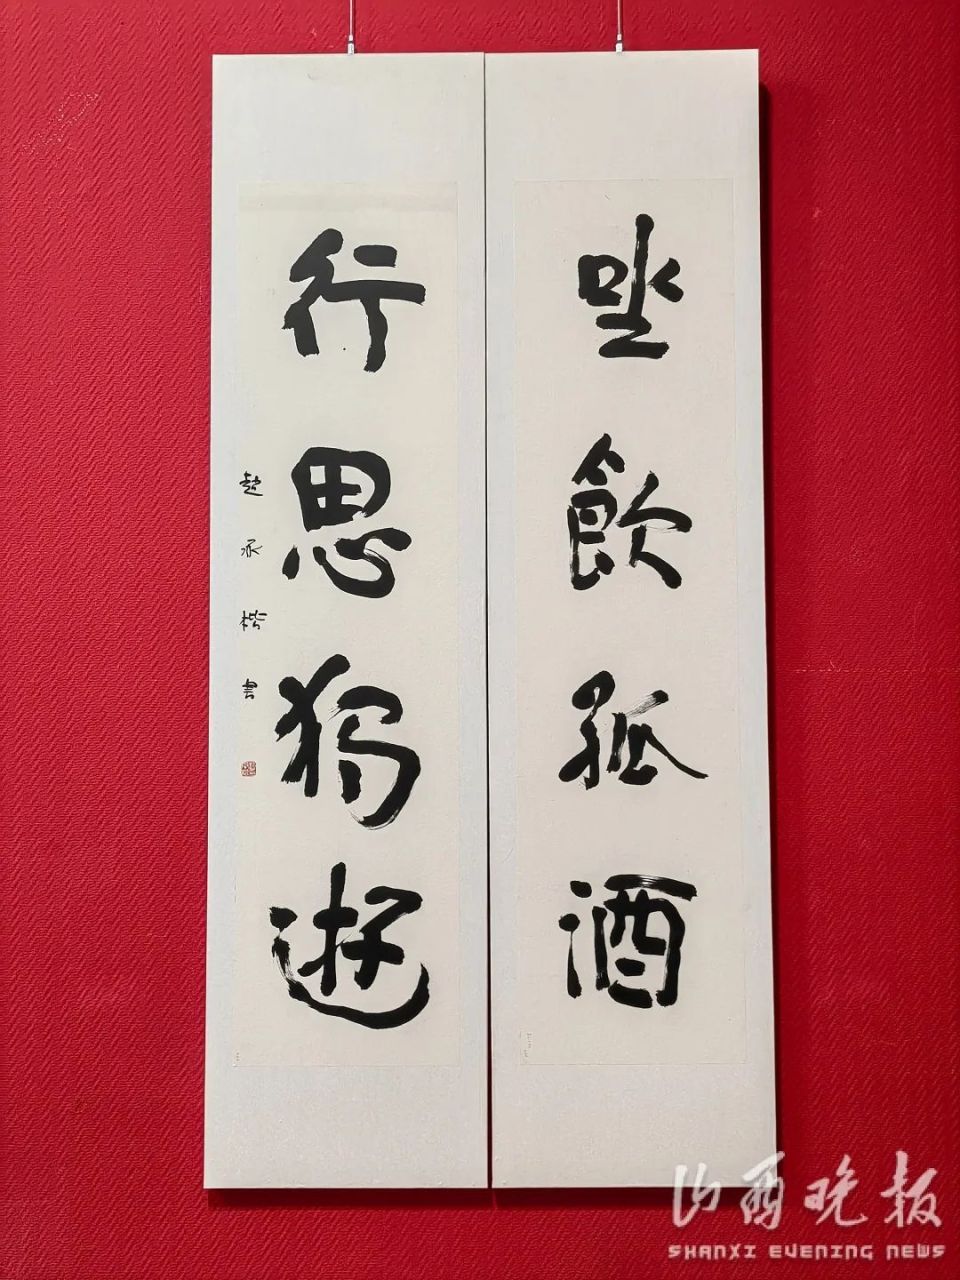 坐飲孤酒
行思独遊
趙承楷書
山西晚报
SHANXI EVENING NEWS